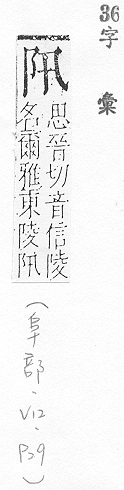 36
字彙
阠
思晉切音信陵
名爾雅東陵阠
（阜部·V12·P29）